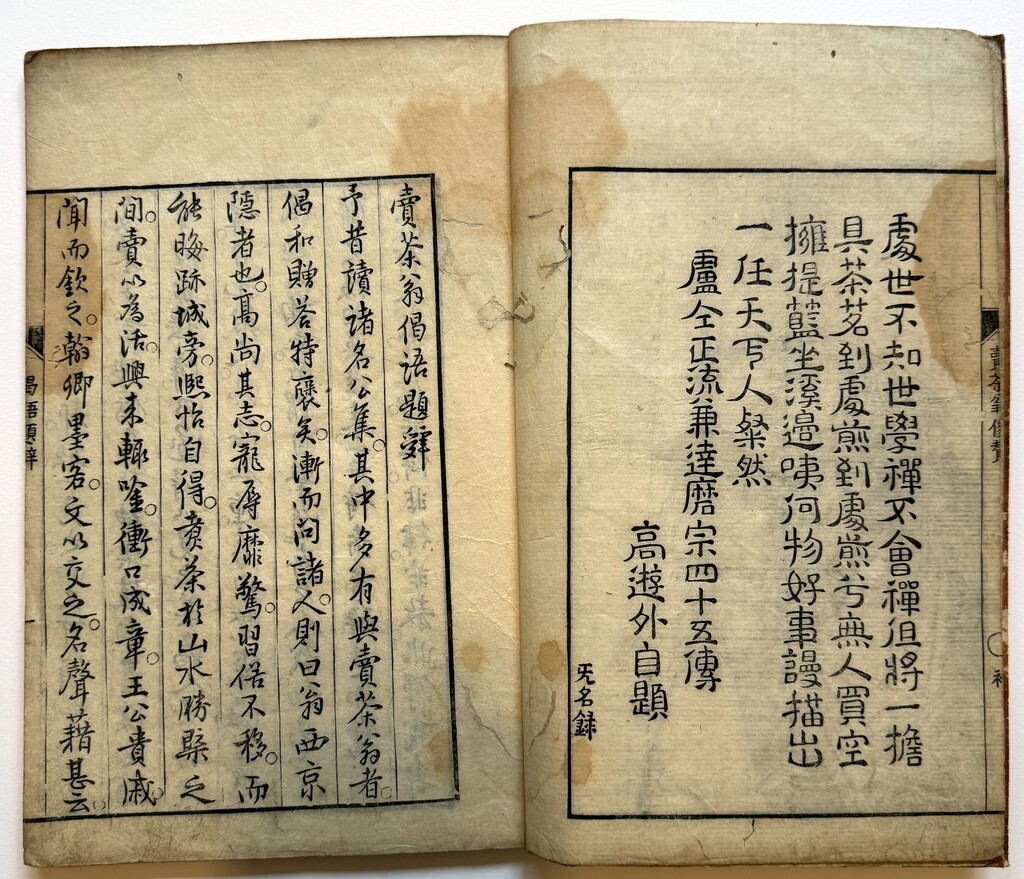 處世不知世學禪不會禪但將一擔
具茶茗到處煎到處煎兮無人買空
擁提籃坐溪邊咦何物好事謾描出
一任天下人粲然
盧仝正流兼達磨宗四十五傳
高遊外自題
旡名錄
賣茶翁像贊
賣茶翁偈語題辭
予昔讀諸名公集。其中多有與賣茶翁者。
倡和贈答特褒矣。漸而問諸人。則曰翁西京
隱者也。高尚其志。寵辱靡驚。習俗不移。而
能晦跡城旁。熙怡自得。賣茶於山水勝槩之
間。賣以為活。興來輒唫。衝口成章。王公貴戚。
聞而欽之。翰卿墨客。文以交之。名聲藉甚云。
偈語題辭